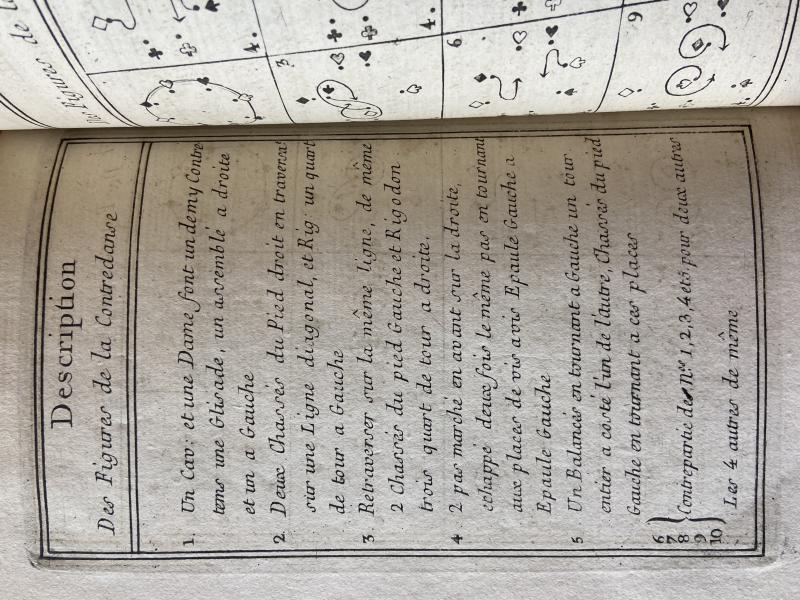 Description
Des Figures de la Contredanse
1. Un Cav: et une Dame font un demy Contre
tems une Glisade, un assemblé a droite
et un a Gauche
2. Deux Chassés du Pied droit en traversa
sur une Ligne diagonal, et Rig: un quart
de tour a Gauche
3 Retraverser sur la même ligne, de même
2 Chassés du pied Gauche et Rigodon
trois quart de tour a droite.
4 2 pas marché en avant sur la droite,
echappé deux fois le même pas en tournant
aux places de vis avis Epaule Gauche a
Epaule Gauche
5 Un Balancés en tournant a Gauche un tour
entier a costé l'un de l'autre, Chassés du pied
Gauche en tournant a ces places
6
7
8 Contrepartie des Nos 1, 2, 3, 4 et 5. pour deux autres
9
10
Les 4 autres de même
Figures de
4.
3
4.
6
9